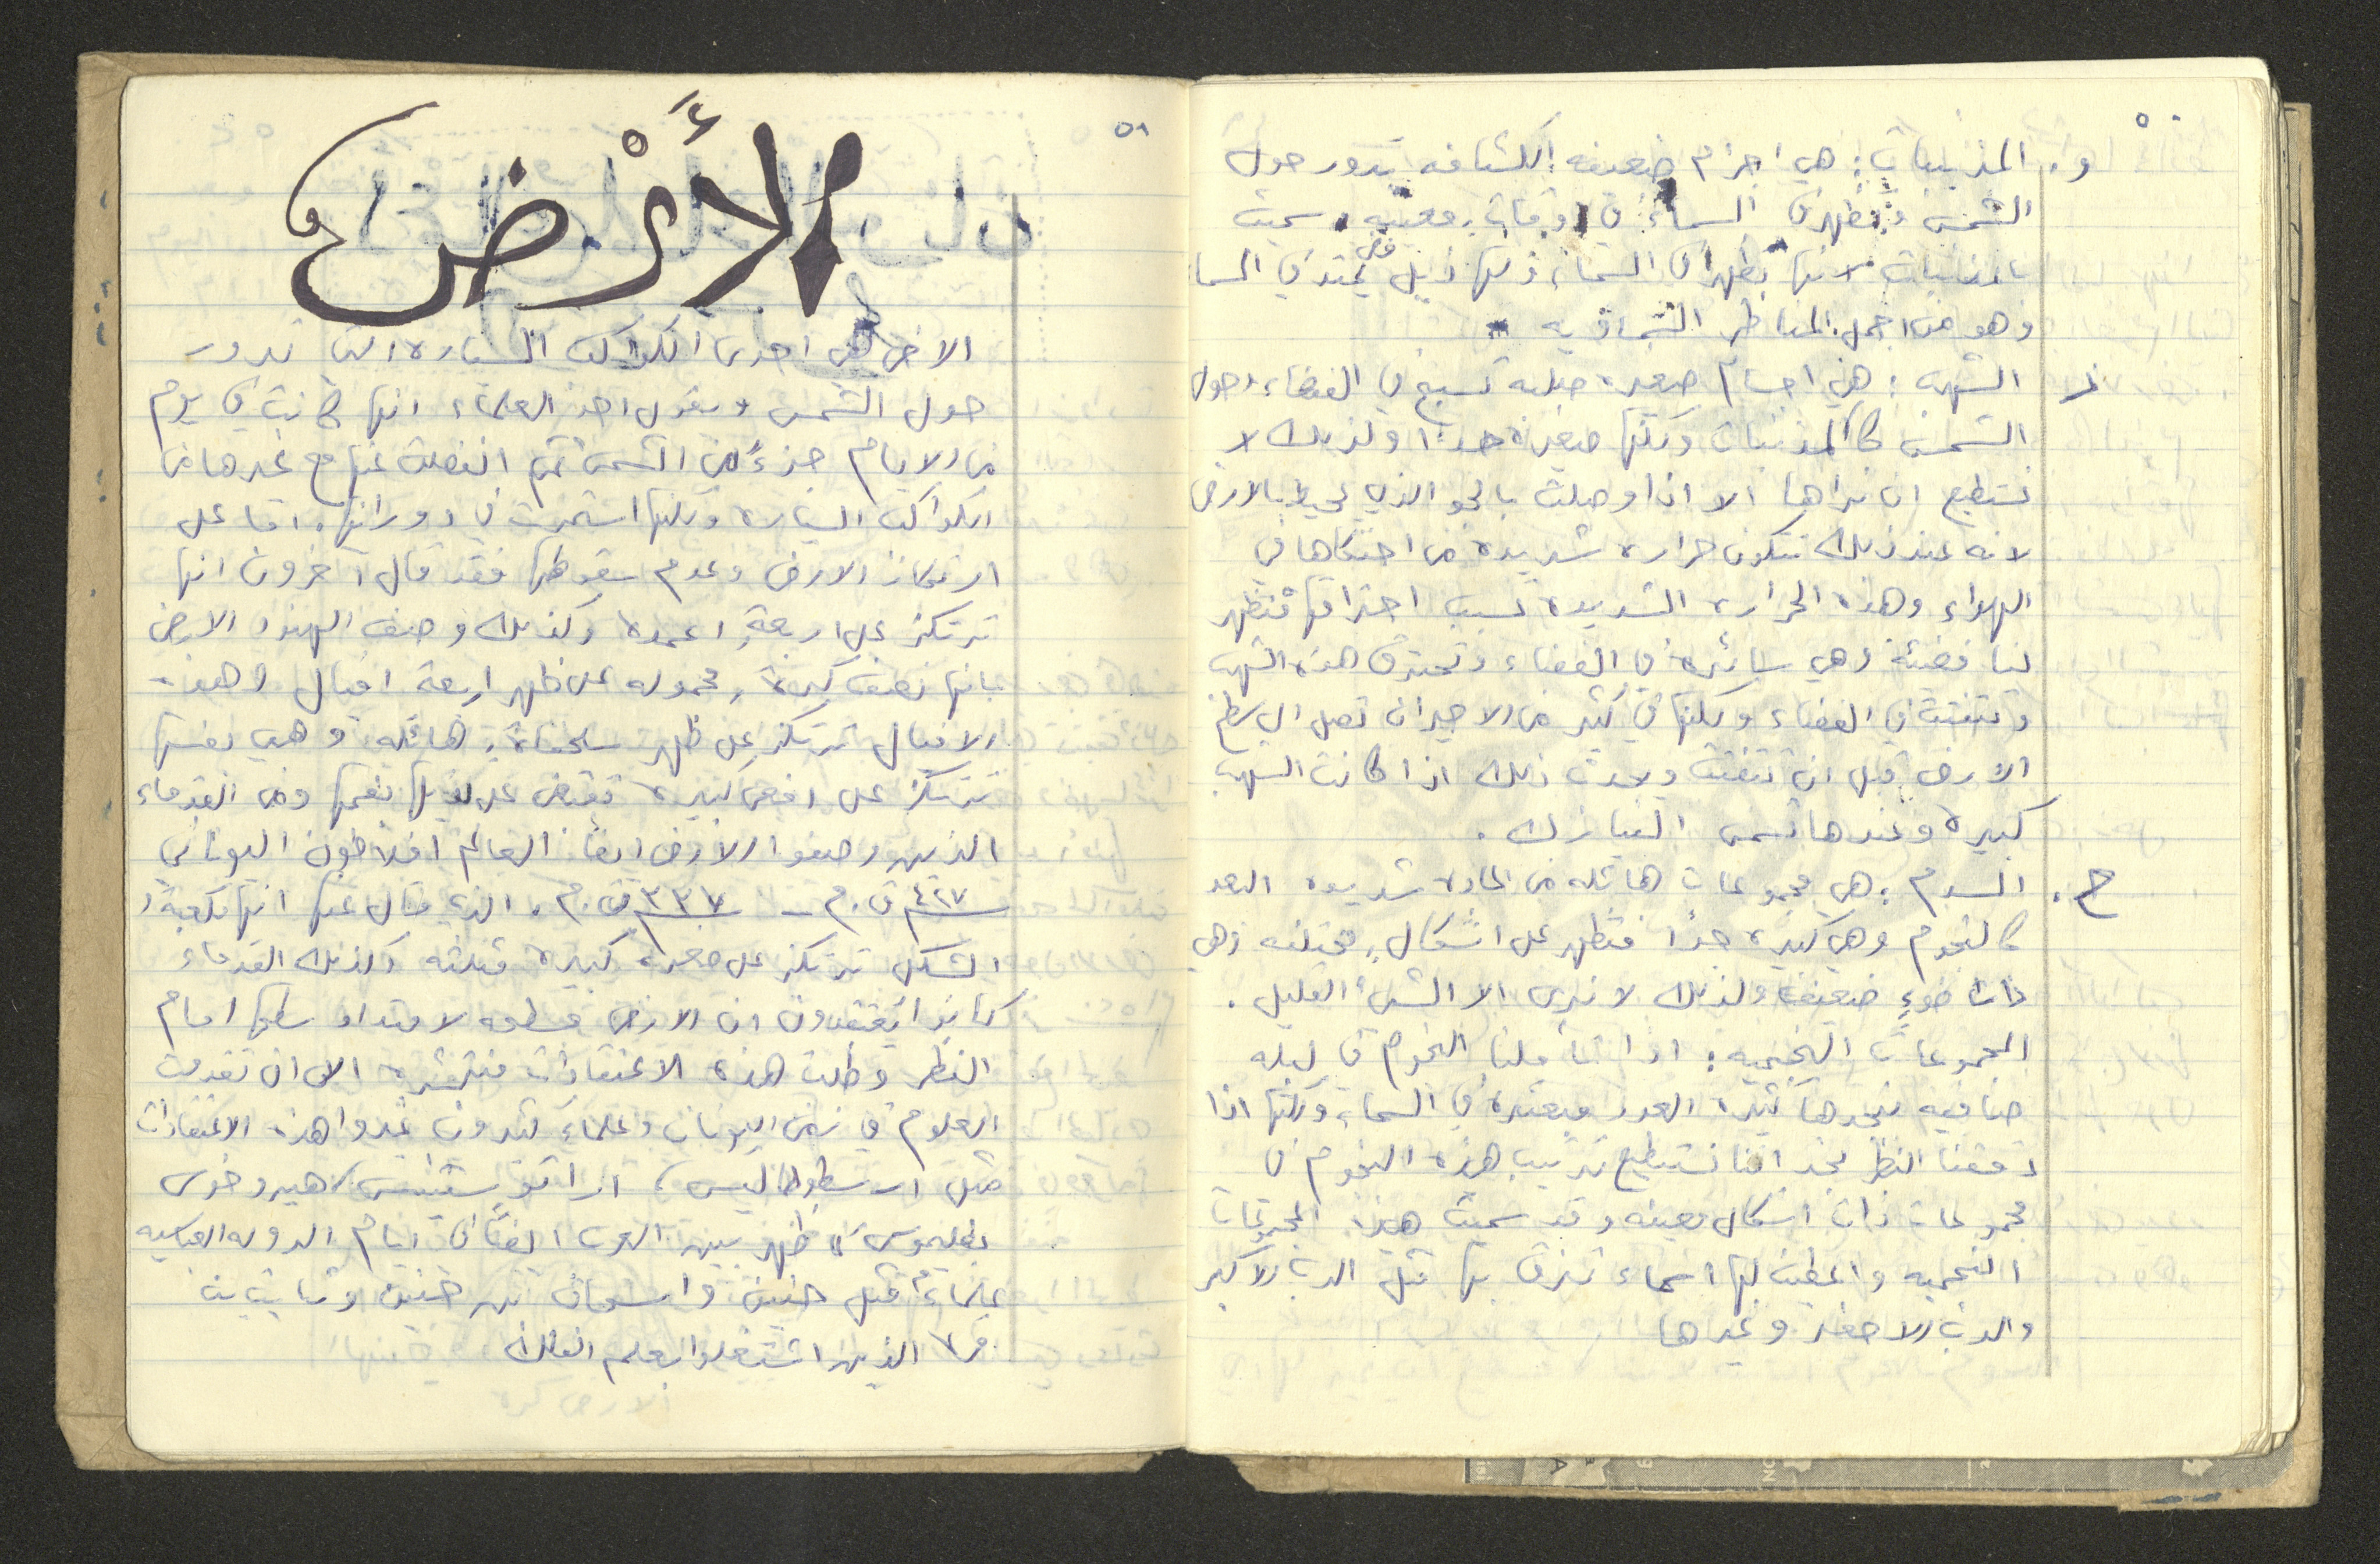 ٥٠
و. المذنبات: هي اجرام ضعيفه الكثافه تدور حول
الشمس وتظهر في السماء في اوقات معينه، سميت
بالمذنبات لانها تظهر في السماء ولها ذيل مضي يمتد في السما
وهو من اجمل المناظر السماويه
ز الشهب: هي اجسام صغيره صلبه تسبح في الفضاء وحول
الشمس كالمذنبات ولكنها صغيره جدا ولذلك لا
نستطيع ان نراها الا اذا وصلت بالجو الذي يحيط بالارض
لانه عند ذلك تتكون حراره شديده من احتكاكها في
الهواء وهذه الحراره الشديده تسبب احتراقها فتظهر
لنا مضيئة وهي سائرة في الفضاء وتحترق هذه الشهب
وتتفتت في الفضاء ولكنها في كثير من الاحيان تصل الى سطح
الارض قبل ان تتفتت ويحدث ذلك اذا كانت الشهب
كبيره وعندها تسمى النيازك.
ح. السدم: هي مجموعات هائله من الماده شديده البعد
كالنجوم وهي كبيره جدًا فتظهر على اشكالٍ مختلفه وهي
ذات ضوءٍ ضعيف ولذلك لا نرى الا الشيء القليل.
المجموعات النجميه: اذا تأملنا النجوم في ليله
صافيه نجدها كثيره العدد مبعثره في السماء ولكنها اذا
دققنا النظر نجد اننا نستطيع ترتيب هذه النجوم في
مجموعات ذات اشكال معينه وقد سميت هذه المجموعات
النجميه واعطيت لها اسماء تعرف بها مثل الدب الاكبر
والدب الاصغر وغيرها
٥١
الأَرْض
الارض هي احدى الكواكب السياره التي تدور
حول الشمس ويقول احد العلماء انها كانت في يوم
من الايام جزءً من الشمس ثم انفصلت عنها مع غيرها من
الكواكب السياره ولكنها استمرت في دورانها. اما على
ارتكاز الارض وعدم سقوطها فقد قال آخرون انها
ترتكز على اربعةِ اعمده وكذلك وصف الهنود الارض
بانها نصف كرة محموله على ظهر اربعة افيال وهذه
الافيال ترتكز على ظهر سلحفاة هائله وهي نفسها
ترتكز على افعى كبيره تقبض على ذيلها بفمها ومن القدماء
الذين وصفوا الارض ايضًا العالم افلاطون اليوناني
٤٢٧ ق.م - ٣٣٧ ق.م. الذي قال عنها انها مكعبة
الشكل ترتكز على صخره كبيرة مثلثه وكذلك القدماء
كانوا يعتقدون ان الارض مسطحه لامتداد سطحها امام
النظر وظلت هذه الاعتقادات منتشره الى ان تقدمت
العلوم في زمن اليونان وعلماء كثيرون غيروا هذه الاعتقادات
مثل ارسطوطاليس، اراتوستينس، هيروخوس
بطليموس، ظهر بين العرب ايضًا في ايام الدوله العباسيه
علماءٌ مثل حنين واسحاق بن حنين وثابت بن
قره الذين اشتغلوا بعلم الفلك